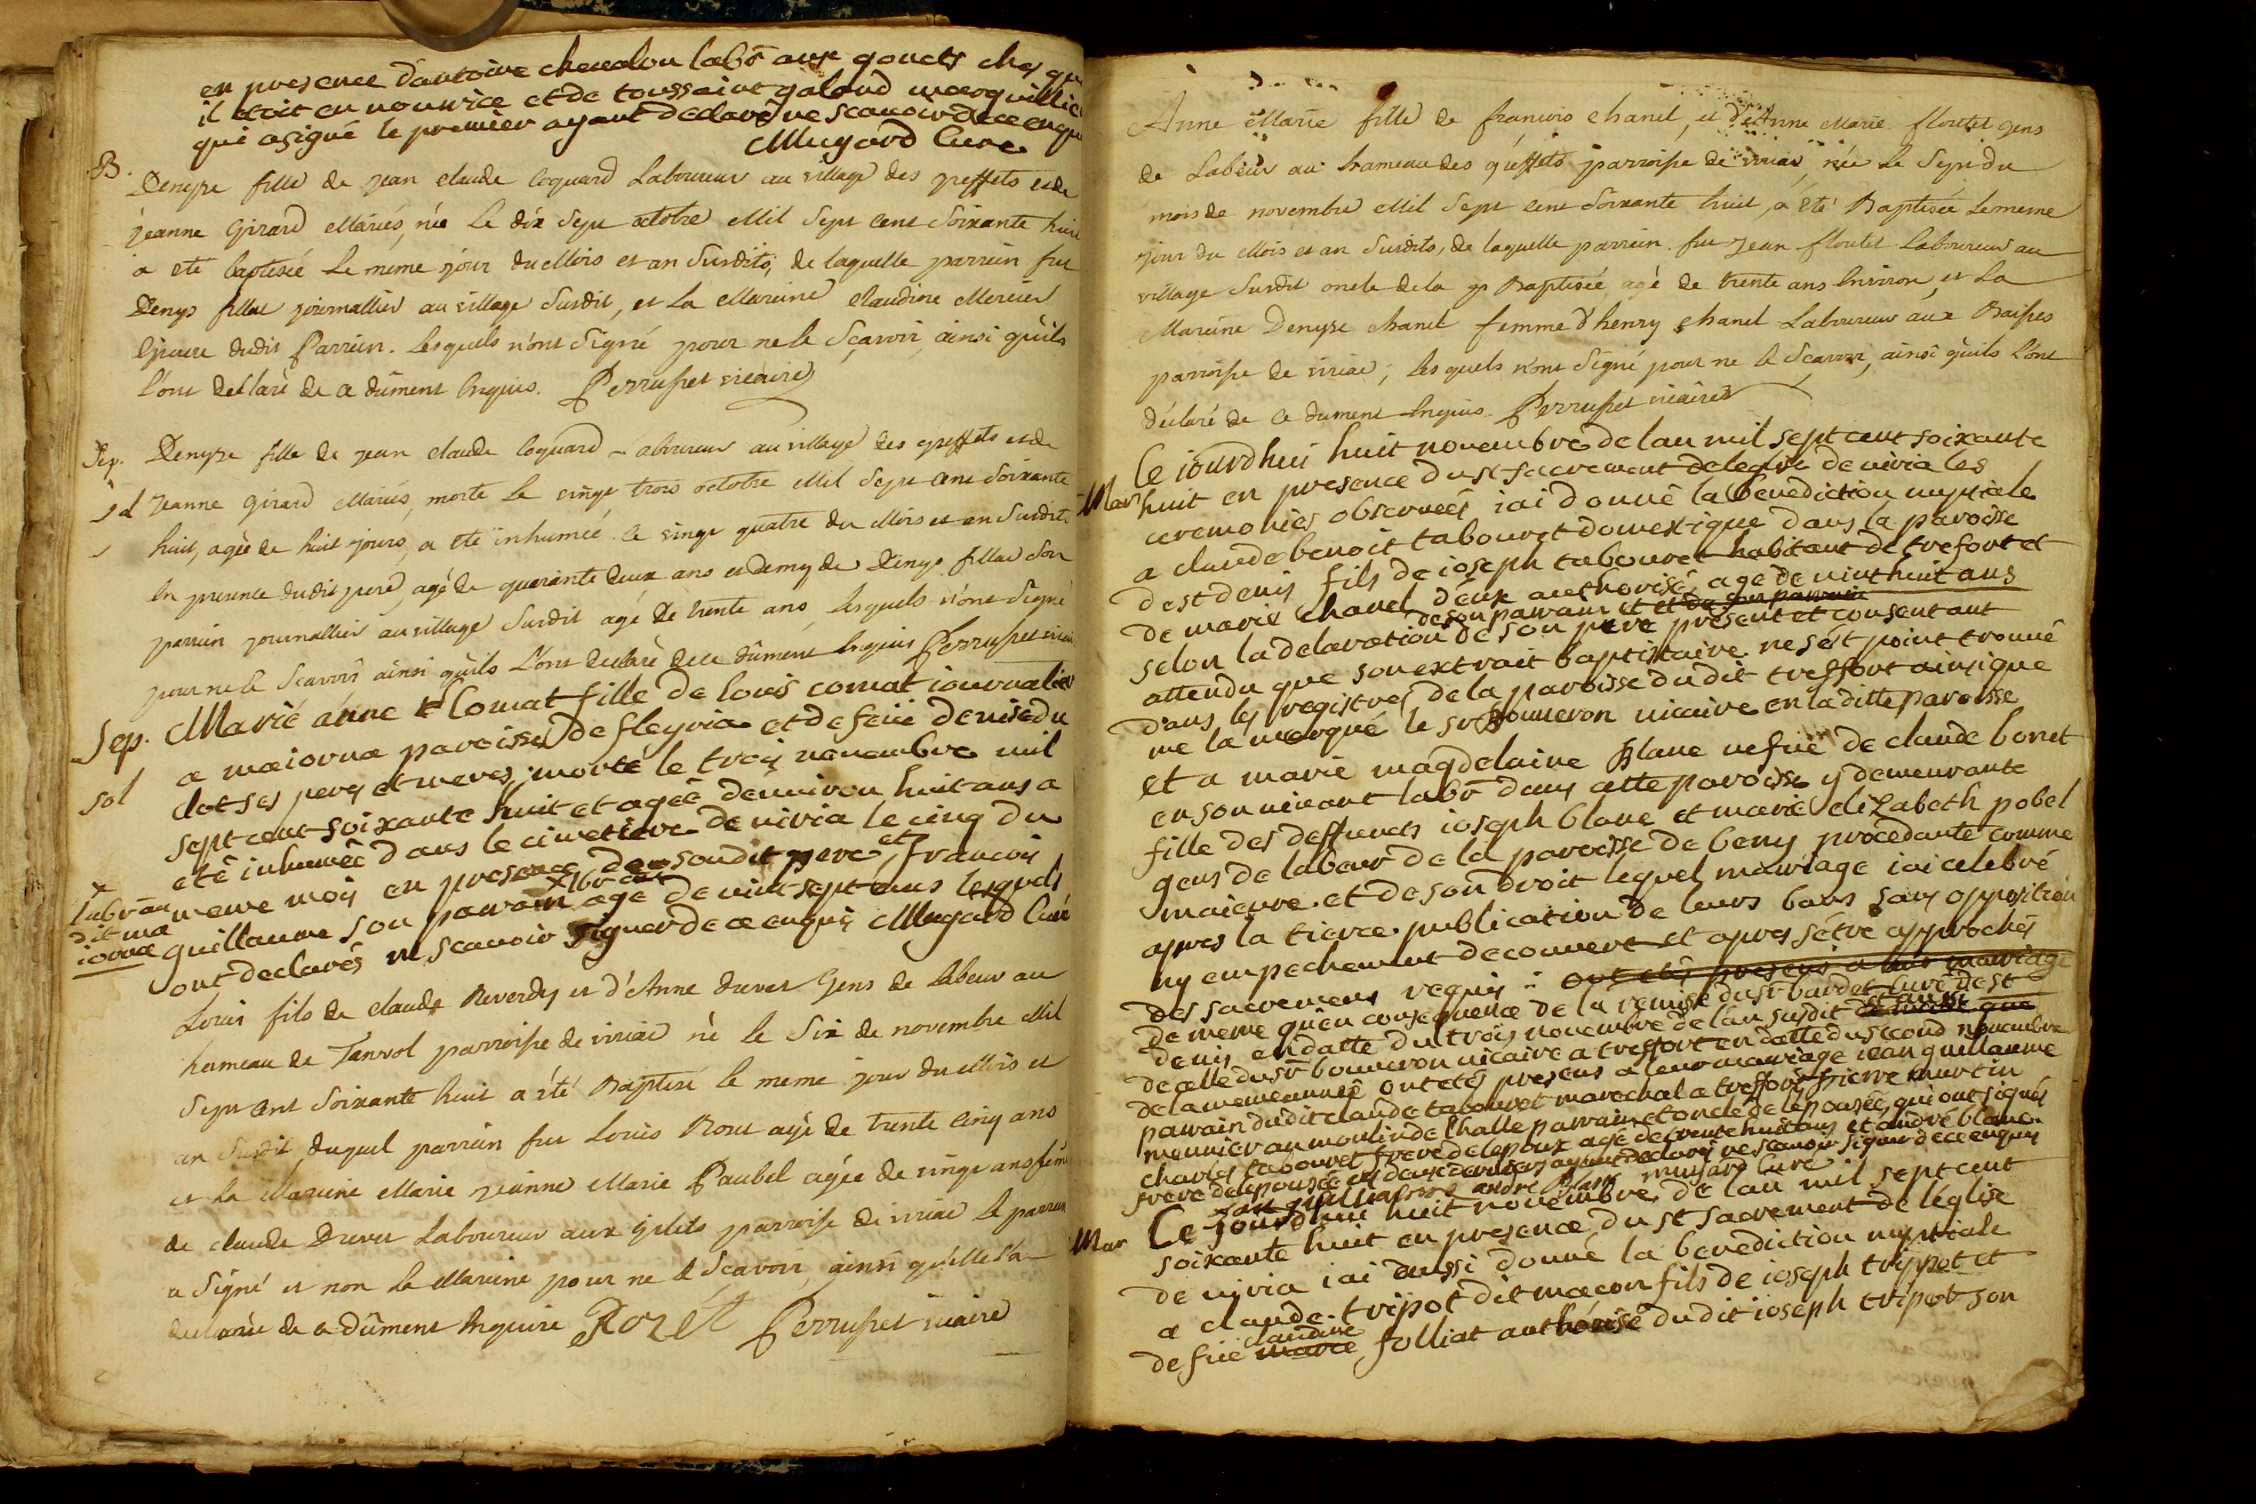 en presence d'antoine chevalon labr aux goncts ches qui
il etoit en nourrice et de toussaint galand marguillier
qui a signé le premier ayant declaré ne scavoir de ce enquis
Mugard Curé
B.
Denyse fille de jean claude Coquard Laboureur au village des greffets et de
jeanne Girard Mariés, née Le dix Sept octobre Mil Sept Cent Soixante huit
a eté baptisée Le meme jour du Mois et an Susdits, de laquelle parrein fut
Denys fillat journallier au village Susdit, et La Mareine Claudine Mercier
Epouse dudit Parrein. Lesquels n'ont Signé pour ne le Sçavoir ainsi qu'ils
L'ont declaré de ce dûment Enquis. Perruset vicaire
Sep. Denyse fille de jean claude Coquard Laboureur au village des greffets et de
Jeanne Girard Mariés, morte Le vingt trois octobre Mil Sept Cent Soixante
huit, agée de huit jours, a eté inhumée le vingt quatre du Mois et an Susdits
En presence dudit pere, agé de quarante deux ans et demy de Denys fillat Son
parrein journallier au village Susdit agé de trente ans, Lesquels n'ont Signé
pour ne le Scavoir ainsi qu'ils L'ont declaré de ce dûment Enquis Perruset vicaire
Sep. Marie anne Comat fille de louis comat iournalier
sol a maiorna paroisse de fleyria et de feüe denise du
clot ses peres et meres, morte le trois novembre mil
sept cent soixante huit et agée denviron huit ans a
eté inhumée dans le cimetiere de viria le cinq du
meme mois en presence de sondit pere, et francois
guillaume son parrain agé de vint sept ans lesquels
x labr au
dit ma
iorna
ont declarés ne scavoir signer de ce enquis Mugard Curé
Louis fils de claude Reverdy et d'Anne drevet Gens de Labeur au
hameau de Tanvol parroisse de viriac né le Six de novembre Mil
Sept Cent Soixante huit a été Baptisé le meme jour du Mois et
an Susdit, duquel parrein fut Louis Rozet agé de trente Cinq ans
et La Mareine Marie jeanne Marie Paubel agée de vingt ans femme
de claude Drevet Laboureur aux parroisse de viriac Le parrein
a Signé et non La Mareine pour ne le Scavoir, ainsi qu'elle l'a
declaré de ce dûment Enquise Rozet Perruset vicaire
Anne Marie fille de francois chanel, et d'Anne Marie floutet gens
de Labeur au hameau des greffets parroisse de viriac, née Le Sept du
mois de novembre Mil Sept Cent Soixante huit, a été Baptisée Le meme
jour du Mois et an Susdits, de laquelle parrein fut Jean floutet Laboureur au
village Susdit oncle de la Baptisée agé de trente ans Environ, et La
Mareine Denyse chanel femme d'henry chanel Laboureur aux Baisses
parroisse de viriac, Lesquels n'ont Signé pour ne le Scavoir, ainsi qu'ils L'ont
déclaré de ce dument Enquis Perruset vicaire
Ce iourdhui huit novembre de lan mil sept cent soixante
Mar huit en presence du st sacrement de leglise de viria les
ceremonies observeés iai donné la benediction nuptiale
a claude benoit tabouret domestique dans la paroisse
de st denis fils de ioseph tabouret habitant de trefort et
de marie chanel, deux authorisé, agé de vint huit ans
de son parrain et de son parrain
selon la declaration de son pere present et consentant
attendu que son extrait baptistaire ne s'est point trouvé
dans les registres de la paroisse dudit treffort ainsi que
me la marqué le sr bouveron vicaire en la ditte paroisse
et a marie magdelaine blanc vefue de claude bonet
en son vivant labr dans cette paroisse y demeurante
fille des deffuncts ioseph blanc et marie elizabeth pobel
gens de labeur de la paroisse de beny procedante comme
maieure et de son droit lequel mariage iai celebré
apres la tierce publication de leurs bans sans opposition
ny empechement decouvert et apres s'être approchés
des sacremens requis ont etés presens a leur mariage
de meme qu'en consequence de la remise du sr bardet curé de st
denis en datte du trois novembre de lan susdit et aussi
de celle du sr bouveron vicaire a treffort en datte du second novembre
de la meme année ont etés presens a leur mariage iean guillaume
parrain dudit claude tabouret marechal a treffort, pierre murtin
meunier au moulin de Challe parrain et oncle de lépousée, qui ont signés
charles tabouret frere de lepoux agé de trente huit ans et andré blanc
frere de lepousée les deux derniers ayant declarés ne scavoir signer de ce enquis
jan guilliaume andre blanc mugard Curé
Mar Ce iourdhui huit novembre de lan mil sept cent
soixante huit en presence du st sacrement de léglise
de viria iai aussi donné la benediction nuptiale
a claude tripot dit macon fils de ioseph trippot et
claudine
de feüe marie folliat authorisé dudit ioseph tripot son